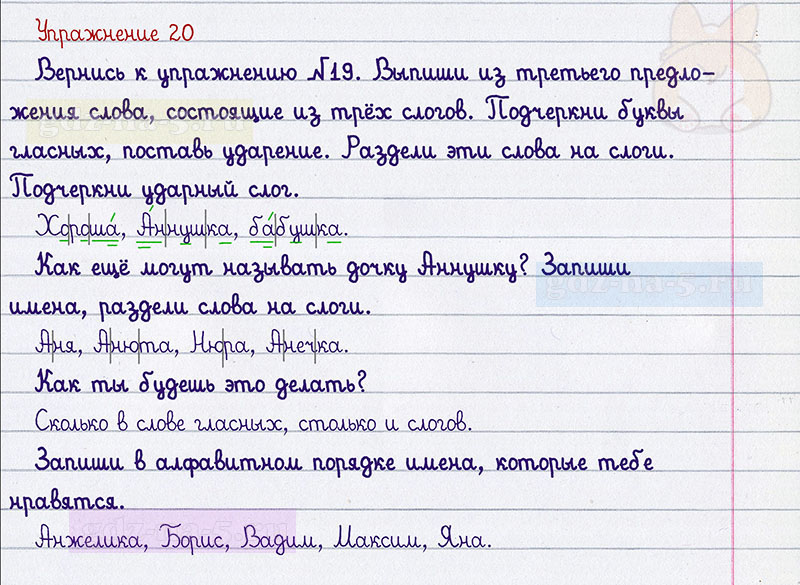 Упражнение 20
Вернись к упражнению №19. Выпиши из третьего предло-
жения слова, состоящие из трёх слогов. Подчеркни буквы
гласных, поставь ударение. Раздели эти слова на слоги.
Подчеркни ударный слог.
Хо|ро|ша́, А́н|нуш|ка, ба́|буш|ка.
Как ещё могут называть дочку Аннушку? Запиши
имена, раздели слова на слоги.
А|ня, А|ню|та, Ню|ра, А|неч|ка.
Как ты будешь это делать?
Сколько в слове гласных, столько и слогов.
Запиши в алфавитном порядке имена, которые тебе
нравятся.
Анжелика, Борис, Вадим, Максим, Яна.
gdz-na-5.ru
gdz-na-5.ru
gdz-na-5.ru